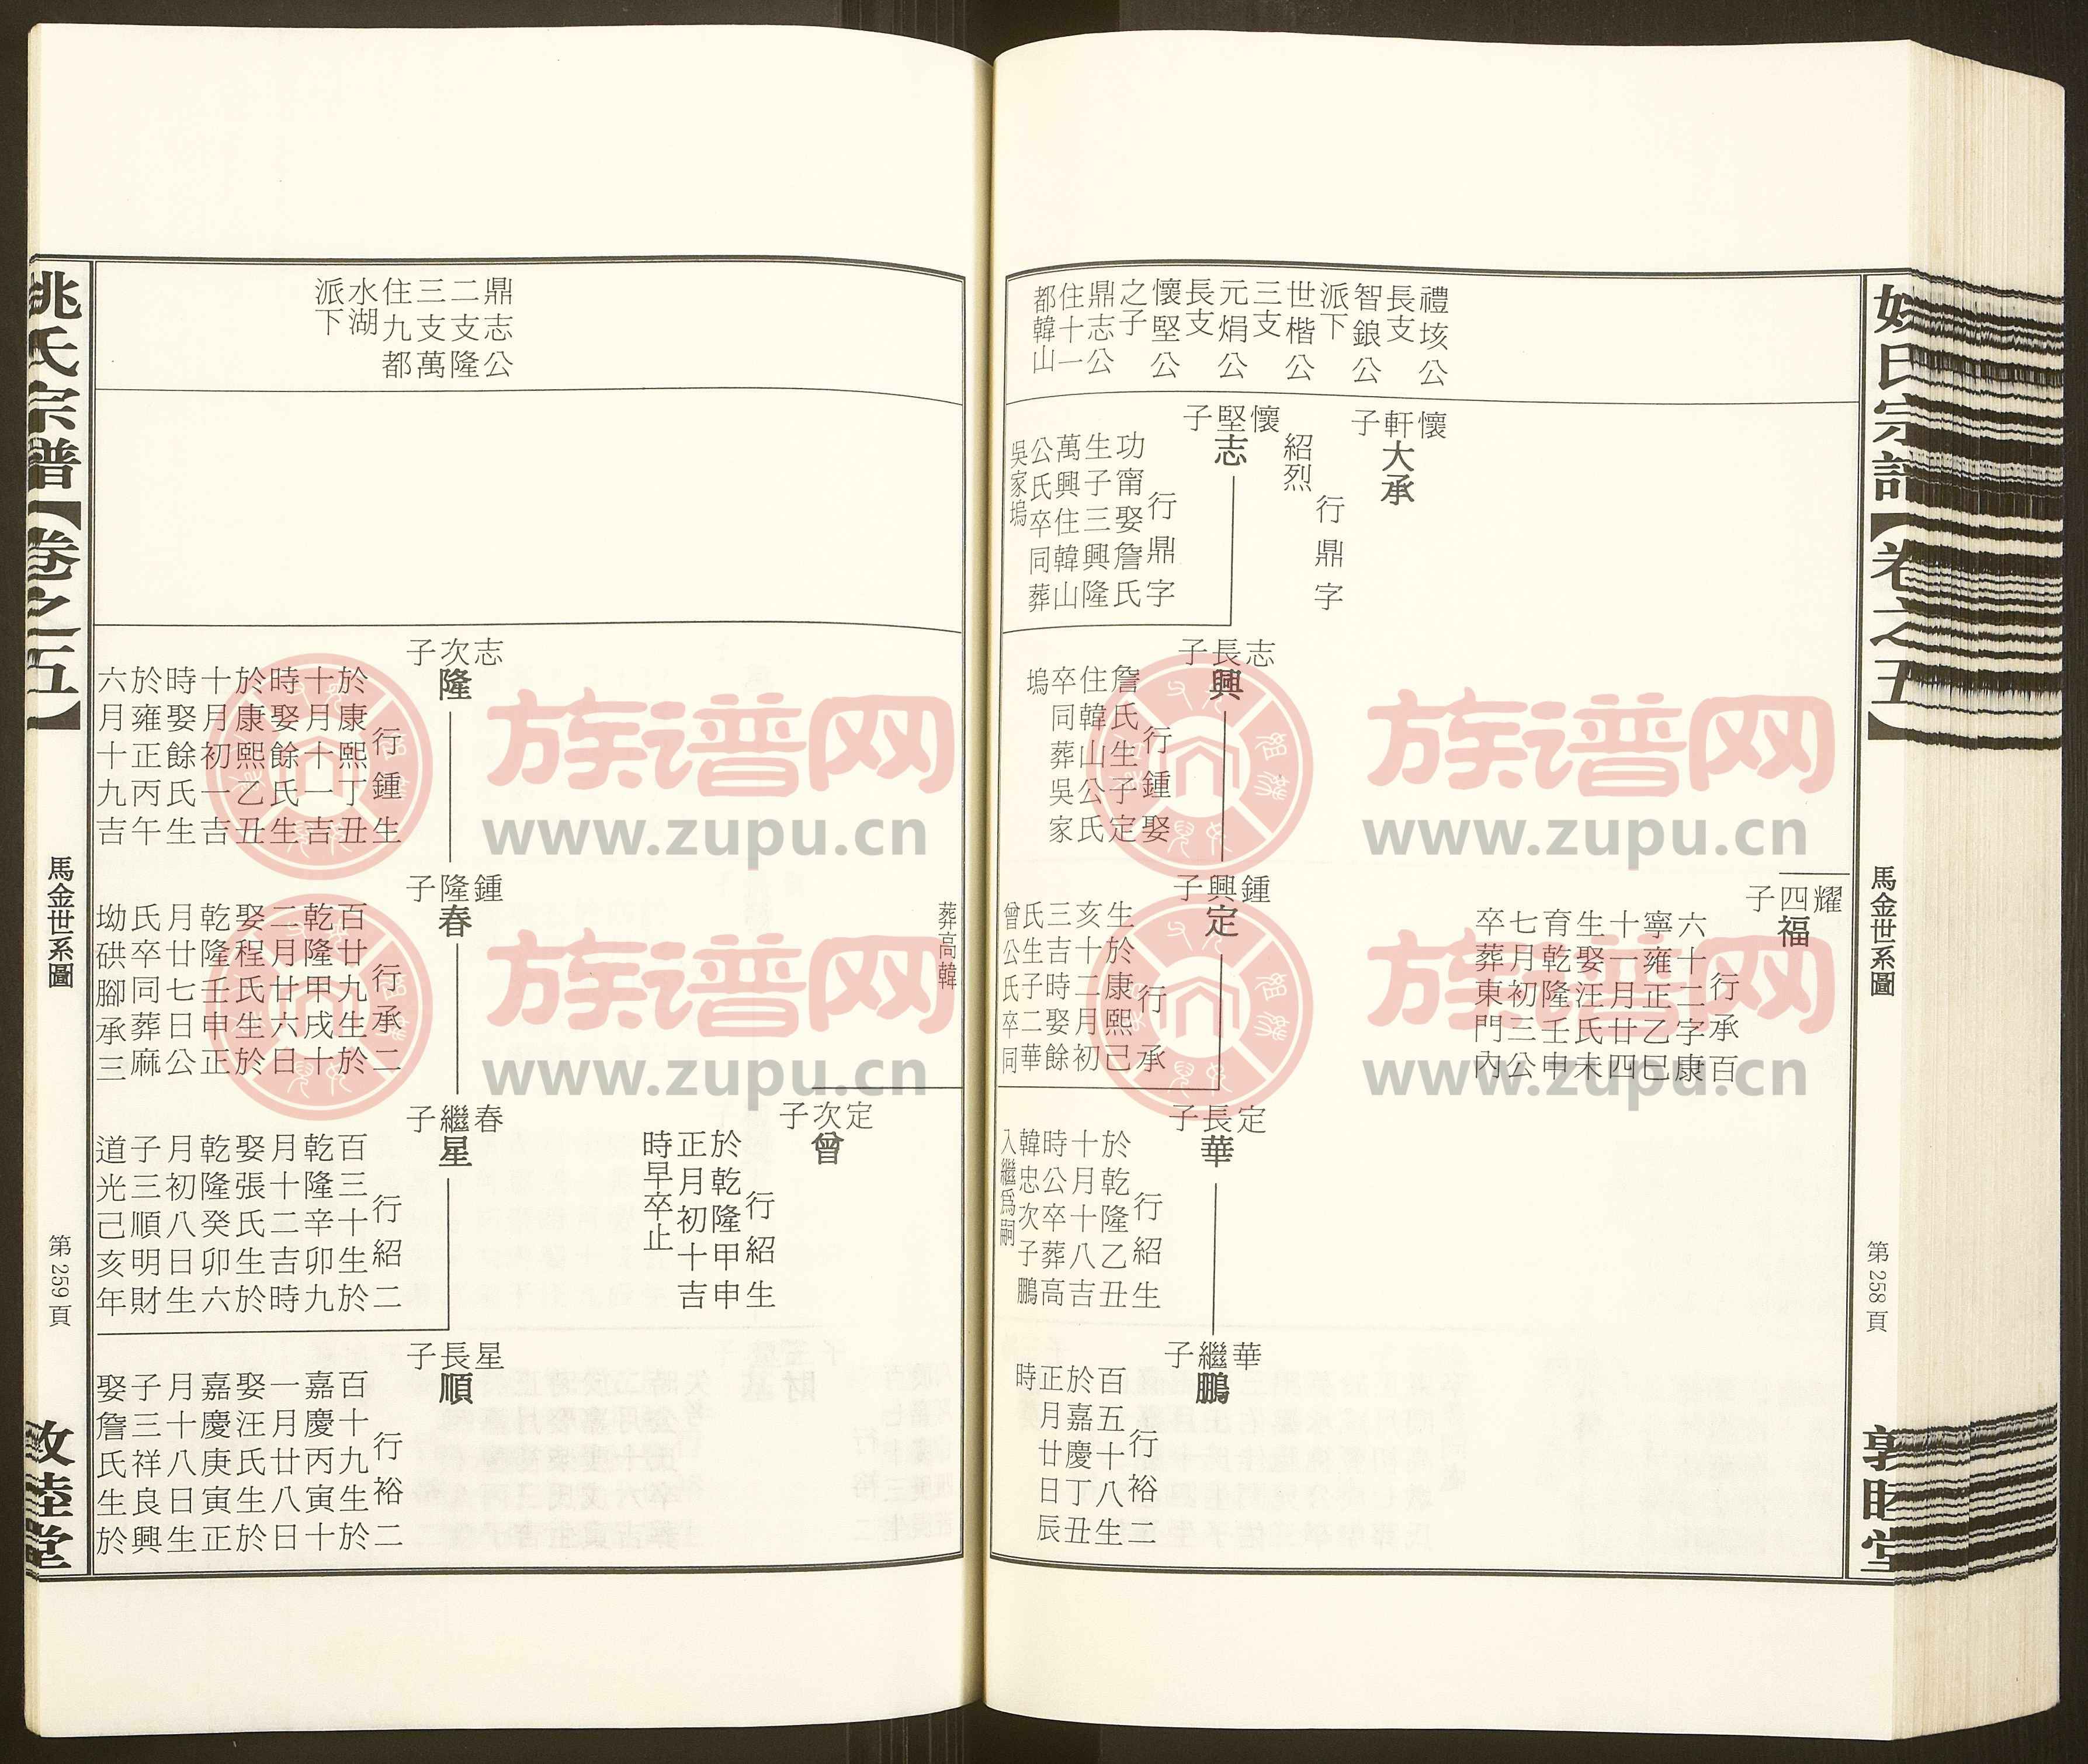 姚氏宗譜【卷之五】
馬金世系圖
第258頁
敦睦堂
禮垓公
長支
智銀公
派下
世楷公
三支
元焆公
長支
懷堅公
之子
鼎志公
住十一
都韓山
耀四子
福
行承百
六十二字康
寧雍正乙巳
十一月廿四
生娶汪氏未
育乾隆壬申
七月初三公
卒葬東門內
懷軒子
大承
行鼎字
紹烈
懷堅子
志
行鼎字
功甯娶詹氏
生子三興隆
萬興住韓山
公氏卒同葬
吳家塢
志長子
興
行鍾娶
詹氏生子定
住韓山公氏
卒同葬吳家
塢
鍾興子
定
行承
生於康熙己
亥十二月初
三吉時娶餘
氏生子二華
曾公氏卒同
葬高韓
定長子
華
行紹生
於乾隆乙丑
十月十八吉
時公卒葬高
韓忠次子鵬
入繼為嗣
華繼子
鵬
行裕二
百五十八生
於嘉慶丁丑
正月廿日辰
時
定次子
曾
行紹生
於乾隆甲申
正月初十吉
時早卒止
鼎志公
二支隆
三支萬
住九都
水湖
派下
志次子
隆
行鍾生
於康熙丁丑
十月十一吉
時娶餘氏生
於康熙乙丑
十月初一吉
時娶餘氏生
於雍正丙午
六月十九吉
鍾隆子
春
行承二
百廿九生於
乾隆甲戌十
二月廿六日
娶程氏生於
乾隆壬申正
月廿七日公
氏卒同葬麻
坳硔腳承三
春繼子
星
行紹二
百三十生於
乾隆辛卯九
月十二吉時
娶張氏生於
乾隆癸卯六
月初八日生
子三順明財
道光己亥年
星長子
順
行裕二
百十九生於
嘉慶丙寅十
一月廿八日
娶汪氏生於
嘉慶庚寅正
月十八日生
子三祥良興
娶詹氏生於
姚氏宗譜【卷之五】
馬金世系圖
第259頁
敦睦堂
族谱网
www.zupu.cn
族谱网
www.zupu.cn
族谱网
www.zupu.cn
族谱网
www.zupu.cn